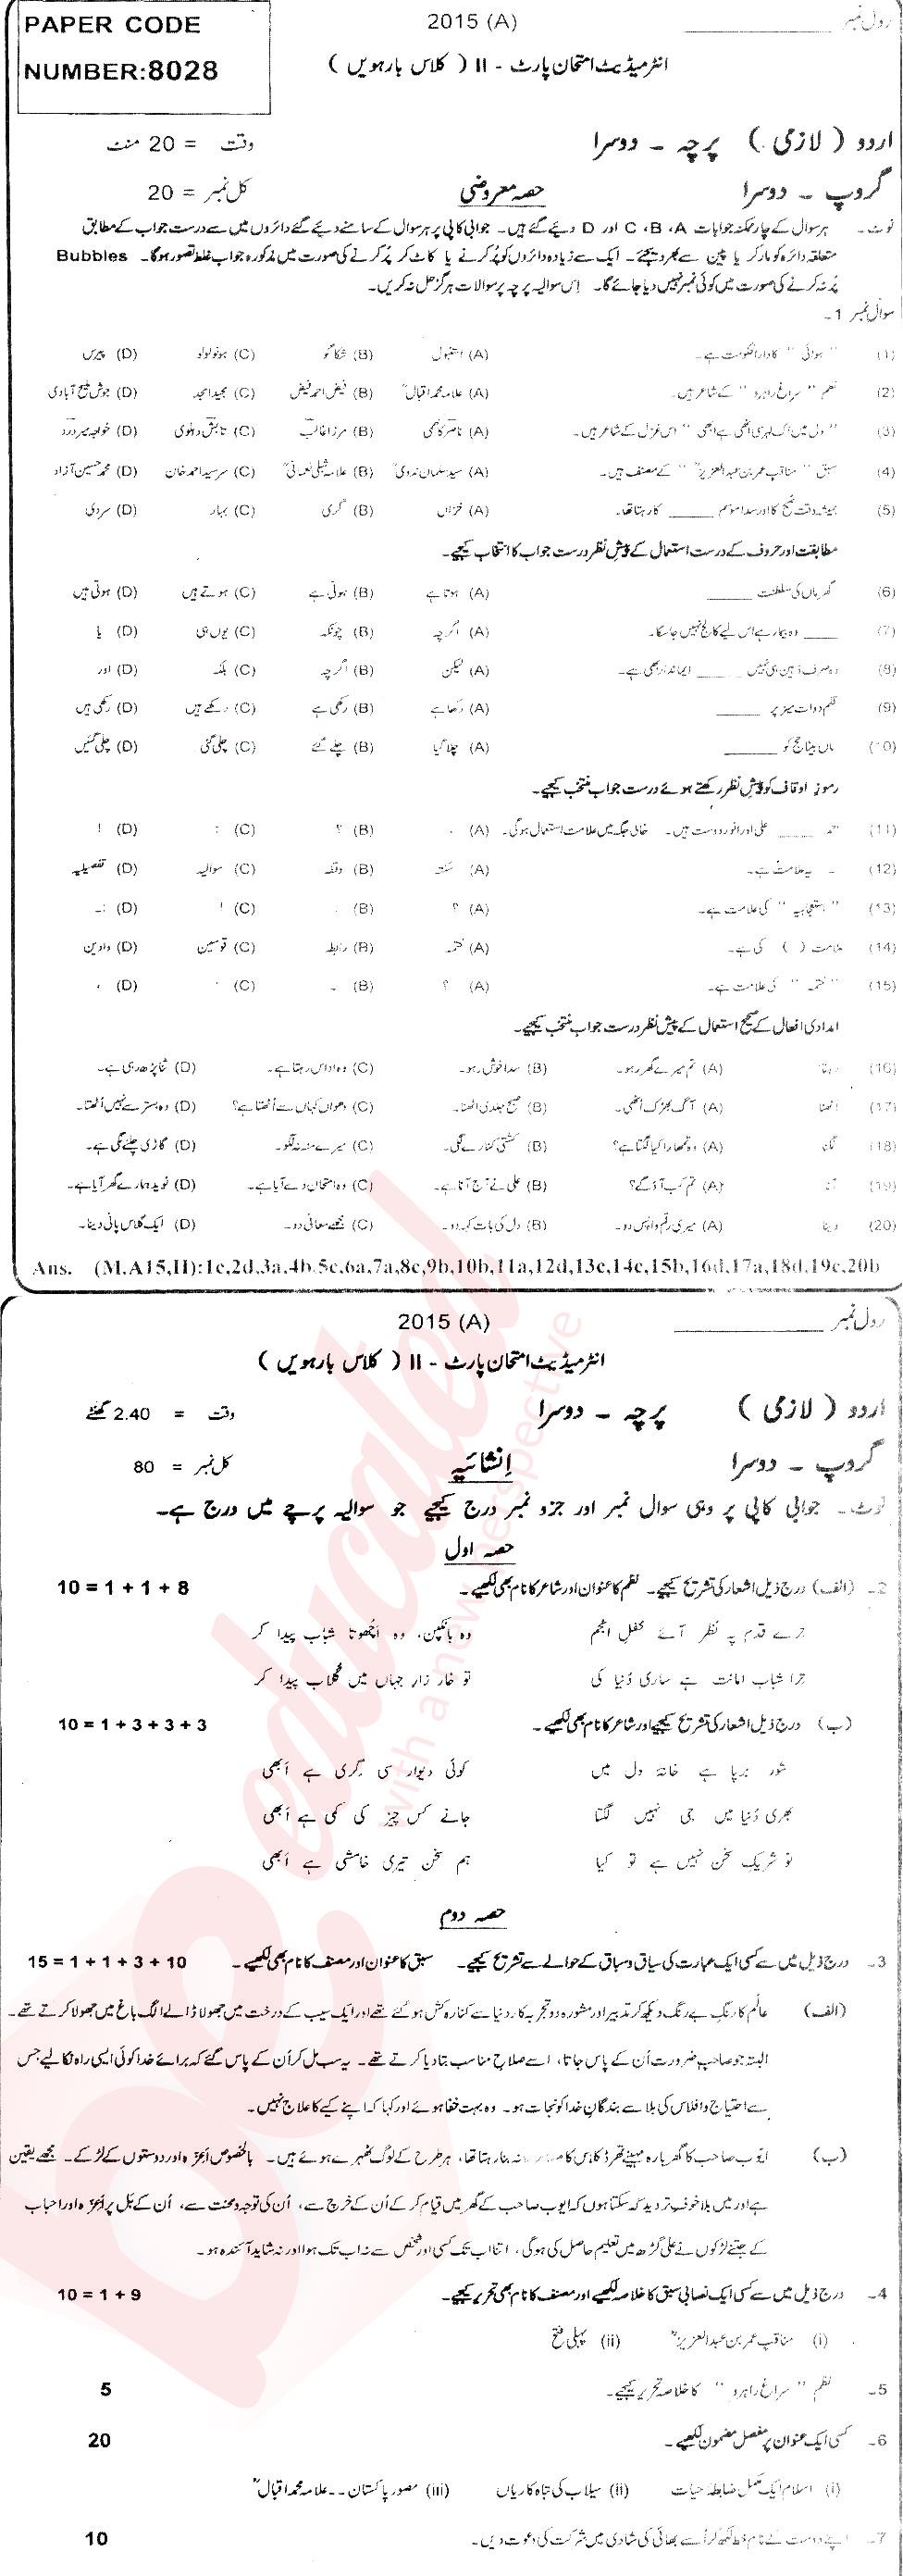 PAPER CODE
NUMBER:8028
2015 (A)
رول نمبر
انٹرمیڈیٹ امتحان پارٹ - II ( کلاس بارہویں )
اردو ( لازمی ) پرچہ - دوسرا
وقت = 20 منٹ
گروپ - دوسرا
حصہ معروضی
کل نمبر = 20
نوٹ - ہر سوال کے چار ممکنہ جوابات A ، B ، C اور D دیئے گئے ہیں۔ جوابی کاپی پر ہر سوال کے سامنے دیئے گئے دائروں میں سے درست جواب کے مطابق
متعلقہ دائرہ کو مارکر یا پین سے بھر دیجئے۔ ایک سے زیادہ دائروں کو پُر کرنے یا کاٹ کر پُر کرنے کی صورت میں مذکورہ جواب غلط تصور ہوگا۔ Bubbles
پُر نہ کرنے کی صورت میں کوئی نمبر نہیں دیا جائے گا۔ اِس سوالیہ پرچہ پر سوالات ہرگز حل نہ کریں۔
سوال نمبر 1۔
(1) " ہوائی " کا دارالحکومت ہے۔ (A) استنبول (B) شکاگو (C) ہونولولو (D) پیرس
(2) نظم " سراغِ راہرو " کے شاعر ہیں۔ (A) علامہ محمد اقبالؒ (B) فیض احمد فیض (C) مجید امجد (D) جوش ملیح آبادی
(3) " دل میں اک لہر سی اٹھی ہے ابھی " اس غزل کے شاعر ہیں۔ (A) ناصر کاظمی (B) مرزا غالب (C) تابش دہلوی (D) خواجہ میر درد
(4) سبق " مناقب عمر بن عبدالعزیزؒ " کے مصنف ہیں۔ (A) سید سلمان ندویؒ (B) علامہ شبلی نعمانیؒ (C) سر سید احمد خان (D) محمد حسین آزاد
(5) ہمیشہ وقت صبح کا اور سدا موسم _____ کا رہتا تھا۔ (A) خزاں (B) گرمی (C) بہار (D) سردی
مطابقت اور حروف کے درست استعمال کے پیشِ نظر درست جواب کا انتخاب کیجیے۔
(6) گھر ماں کی سلطنت _____ (A) ہوتا ہے (B) ہوتی ہے (C) ہوتے ہیں (D) ہوتی ہیں
(7) _____ وہ بیمار ہے اس لیے کالج نہیں جا سکا۔ (A) اگرچہ (B) چونکہ (C) یوں ہی (D) یا
(8) وہ صرف ذہین ہی نہیں _____ ایماندار بھی ہے۔ (A) لیکن (B) اگرچہ (C) بلکہ (D) اور
(9) قلم دوات میز پر _____ (A) رکھا ہے (B) رکھی ہے (C) رکھے ہیں (D) رکھی ہیں
(10) ماں بیٹا حج کو _____ (A) چلا گیا (B) چلے گئے (C) چلی گئی (D) چلی گئیں
رموزِ اوقاف کو پیشِ نظر رکھتے ہوئے درست جواب منتخب کیجیے۔
(11) _____ علی اور انور دوست ہیں۔ خالی جگہ میں علامت استعمال ہوگی۔ (A) ، (B) ؟ (C) : (D) !
(12) یہ علامت ہے۔ (A) سکتہ (B) وقفہ (C) سوالیہ (D) تفصیلیہ
(13) " استعجابیہ " کی علامت ہے۔ (A) ؟ (B) (C) ! (D) :-
(14) علامت ( ) کی ہے۔ (A) ختمہ (B) رابطہ (C) قوسین (D) واوین
(15) " ختمہ " کی علامت ہے۔ (A) ؟ (B) ۔ (C) (D) ،
امدادی افعال کے صحیح استعمال کے پیشِ نظر درست جواب منتخب کیجیے۔
(16) رہنا (A) تم میرے گھر رہو۔ (B) سدا خوش رہو۔ (C) وہ اداس رہتا ہے۔ (D) ثنا پڑھ رہی ہے۔
(17) اٹھنا (A) آگ بھڑک اٹھی۔ (B) صبح جلدی اٹھنا۔ (C) دھواں کہاں سے اُٹھتا ہے؟ (D) وہ بستر سے نہیں اُٹھتا۔
(18) لگنا (A) وہ تمھارا کیا لگتا ہے؟ (B) کشتی کنارے لگی۔ (C) میرے منہ نہ لگو۔ (D) گاڑی چلنے لگی ہے۔
(19) آنا (A) تم کب آؤ گے؟ (B) علی نے آج آنا ہے۔ (C) وہ امتحان دے آیا ہے۔ (D) نوید ہمارے گھر آیا ہے۔
(20) دینا (A) میری رقم واپس دو۔ (B) دل کی بات کہہ دو۔ (C) مجھے معافی دو۔ (D) ایک گلاس پانی دینا۔
Ans. (M.A15,II):1c,2d,3a,4b,5c,6a,7a,8c,9b,10b,11a,12d,13c,14c,15b,16d,17a,18d,19c,20b
2015 (A)
رول نمبر
انٹرمیڈیٹ امتحان پارٹ - II ( کلاس بارہویں )
اردو ( لازمی ) پرچہ - دوسرا
وقت = 2.40 گھنٹے
گروپ - دوسرا
اِنشائیہ
کل نمبر = 80
نوٹ - جوابی کاپی پر وہی سوال نمبر اور جزو نمبر درج کیجیے جو سوالیہ پرچے میں درج ہے۔
حصہ اول
2- (الف) درج ذیل اشعار کی تشریح کیجیے۔ نظم کا عنوان اور شاعر کا نام بھی لکھیے۔ 10 = 1 + 1 + 8
ترے قدم پہ نظر آئے محفلِ انجم وہ بانکپن، وہ اچھوتا شباب پیدا کر
ترا شباب امانت ہے ساری دُنیا کی تو خار زارِ جہاں میں گلاب پیدا کر
(ب) درج ذیل اشعار کی تشریح کیجیے اور شاعر کا نام بھی لکھیے۔ 10 = 1 + 3 + 3 + 3
شور برپا ہے خانۂ دل میں کوئی دیوار سی گری ہے ابھی
بھری دُنیا میں جی نہیں لگتا جانے کس چیز کی کمی ہے ابھی
تو شریک سخن نہیں ہے تو کیا ہم سخن تیری خامشی ہے ابھی
حصہ دوم
3- درج ذیل میں سے کسی ایک عبارت کی سیاق و سباق کے حوالے سے تشریح کیجیے۔ سبق کا عنوان اور مصنف کا نام بھی لکھیے۔ 15 = 1 + 1 + 3 + 10
(الف) عالَم کا رنگ بے رنگ دیکھ کر تدبیر اور مشورہ دو تجربہ کار دنیا سے کنارہ کش ہو گئے تھے اور ایک سیب کے درخت میں جھولا ڈالے الگ باغ میں جھولا کرتے تھے۔
البتہ جو صاحبِ ضرورت اُن کے پاس جاتا، اسے صلاح مناسب بتا دیا کرتے تھے۔ یہ سب مل کر اُن کے پاس گئے کہ برائے خدا کوئی ایسی راہ نکالیے جس
سے احتیاج و افلاس کی بلا سے بندگانِ خدا کو نجات ہو۔ وہ بہت خفا ہوئے اور کہا کہ اپنے کیے کا علاج نہیں۔
(ب) ایوب صاحب کا گھر بارہ مہینے تھرڈ کلاس کا بنا رہتا تھا، ہر طرح کے لوگ ٹھہرے ہوئے ہیں۔ بالخصوص اعزہ اور دوستوں کے لڑکے۔ مجھے یقین
ہے اور میں بلا خوفِ تردید کہہ سکتا ہوں کہ ایوب صاحب کے گھر میں قیام کر کے اُن کے خرچ سے، اُن کی توجہ و محنت سے، اُن کے بَل پر اعزہ اور احباب
کے جتنے لڑکوں نے علی گڑھ میں تعلیم حاصل کی ہوگی، اتنا اب تک کسی اور شخص سے نہ اب تک ہوا اور نہ شاید آئندہ ہو۔
4- درج ذیل میں سے کسی ایک نصابی سبق کا خلاصہ لکھیے اور مصنف کا نام بھی تحریر کیجیے۔ 10 = 1 + 9
(i) مناقب عمر بن عبدالعزیزؒ (ii) پہلی فتح
5- نظم " سراغِ راہرو " کا خلاصہ تحریر کیجیے۔ 5
6- کسی ایک عنوان پر مفصل مضمون لکھیے۔ 20
(i) اسلام ایک مکمل ضابطۂ حیات (ii) سیلاب کی تباہ کاریاں (iii) مصورِ پاکستان - - علامہ محمد اقبالؒ
7- اپنے دوست کے نام خط لکھ کر اُسے بھائی کی شادی میں شرکت کی دعوت دیں۔ 10